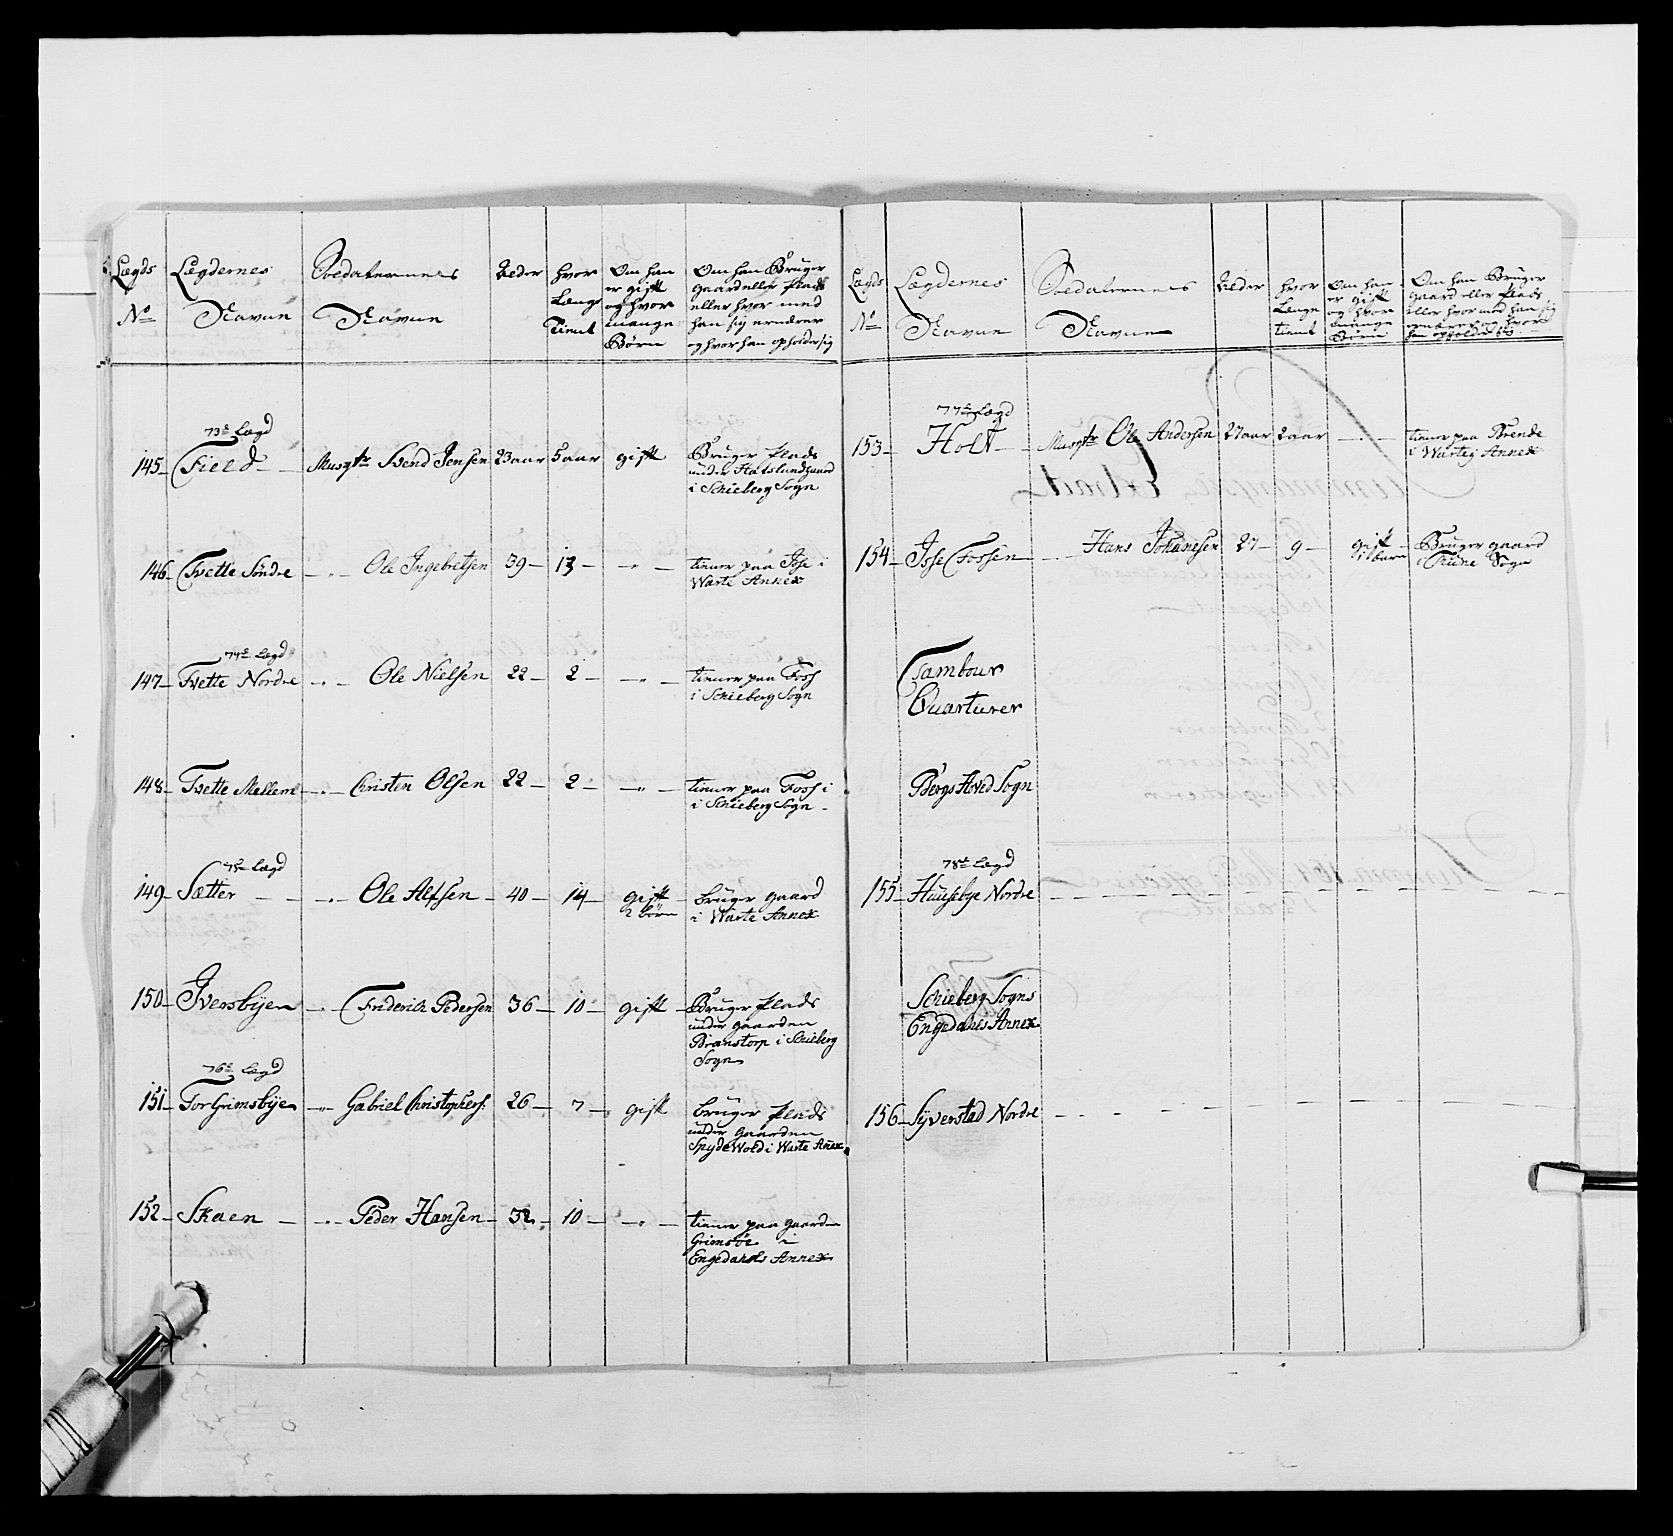 Lægds No Lægdernes Navne Soldaternes Navne Alder hvor Længe tient Om han er gift og hvor mange Børn Om han Bruger gaard eller Plads eller hvor med han sig ernærer og hvor han opholder sig
73de Lægd
145 Field Musqtr Svend Jensen 23 aar 5 aar gift Bruger Plads
under Hafslundgaard
i Schieberg Sogn
146 Tvette Söndre -"- Ole Ingebretsen 39 13 -"- tiener paa Isse i
Warte Annex
74de Lægd
147 Tvette Nordre -"- Ole Nielsen 22 2 -"- tiener paa Foss
i Schieberg Sogn
148 Tvette Mellem -"- Christen Olsen 22 2 -"- tiener paa Foss i
i Schieberg Sogn
75de Lægd
149 Sætter -"- Ole Alfsen 40 14 gift Bruger gaard
2 börn i Warte Annex
150 Iversbyen -"- Friderich Pedersen 36 10 gift Bruger Plads
under gaarden
Brænstorp i Schieberg
Sogn
76de Lægd
151 Torgrimsbyen -"- Gabriel Christophers: 26 7 gift bruger Plads
under gaarden
Spydewold i Warte Anex
152 Skaen -"- Peder Hansen 32 10 -"- tiener paa gaarden
Grimsöe i
Engedahls Annex
Lægds No Lægdernes Navne Soldaternes Navne Alder hvor Længe tient Om han er gift og hvor mange Börn Om han Bruger gaard eller Plads eller hvor med han sig ernærer og hvor han opholder sig
77de Lægd
153 Holt Musqtr Ole Andersen 27 aar 2 aar -"- tiener paa Brende
i Warteig Annex
154 Isse Fossen -"- Hans Johannesen 27 9 gift Bruger gaard
1 barn i Thune Sogn
Tambour
Quarterer
Bergs Hoved Sogn
78de Lægd
155 Huusebye Nordre
Schieberg Sogns
Engedahls Annex
156 Syverstad Nordre